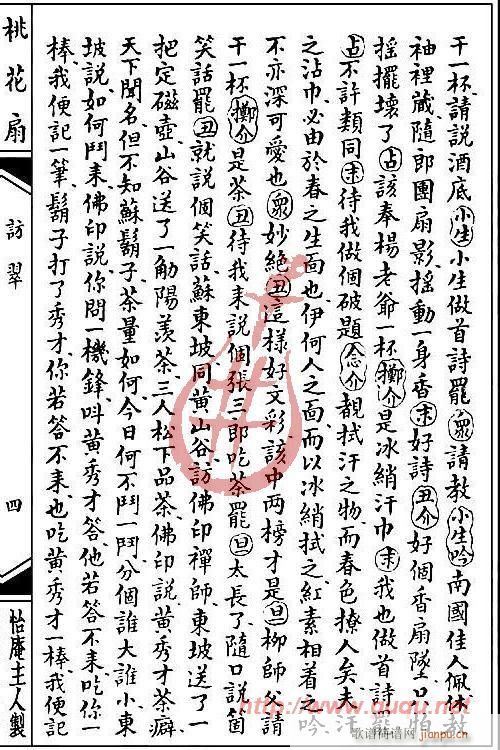 桃花扇
訪翠
四
怡庵主人製
干一杯請說酒底小生小生做首詩罷眾請教小生吟南國佳人佩休
袖裡藏隨即團扇影搖動一身香末好詩丑介好個香扇墜口
搖擺壞了占該奉楊老爺一杯擲介是冰綃汗巾末我也做首詩
占不許類同末待我做個破題念介覩拭汗之物而春色撩人矣夫
之沾巾必由於春之生面也伊何人之面而以冰綃拭之紅素相着之
不亦深可愛也眾妙絕丑這樣好文彩該中兩榜才是旦柳師父請
干一杯擲介是茶丑待我来說個張三郎吃茶罷旦太長了隨口說箇
笑話罷丑就說個笑話蘇東坡同黃山谷訪佛印禪師東坡送了一
把定磁壺山谷送了一觔陽羨茶三人松下品茶佛印說黃秀才茶癖
天下聞名但不知蘇鬍子茶量如何今日何不鬥一鬥分個誰大誰小東
坡說如何鬥来佛印說你問一機鋒叫黃秀才答他若答不来吃你一
棒我便記一筆鬍子打了秀才你若答不来也吃黃秀才一棒我便記
http://www.ququ.net
歌谱简谱网
jianpu.cn